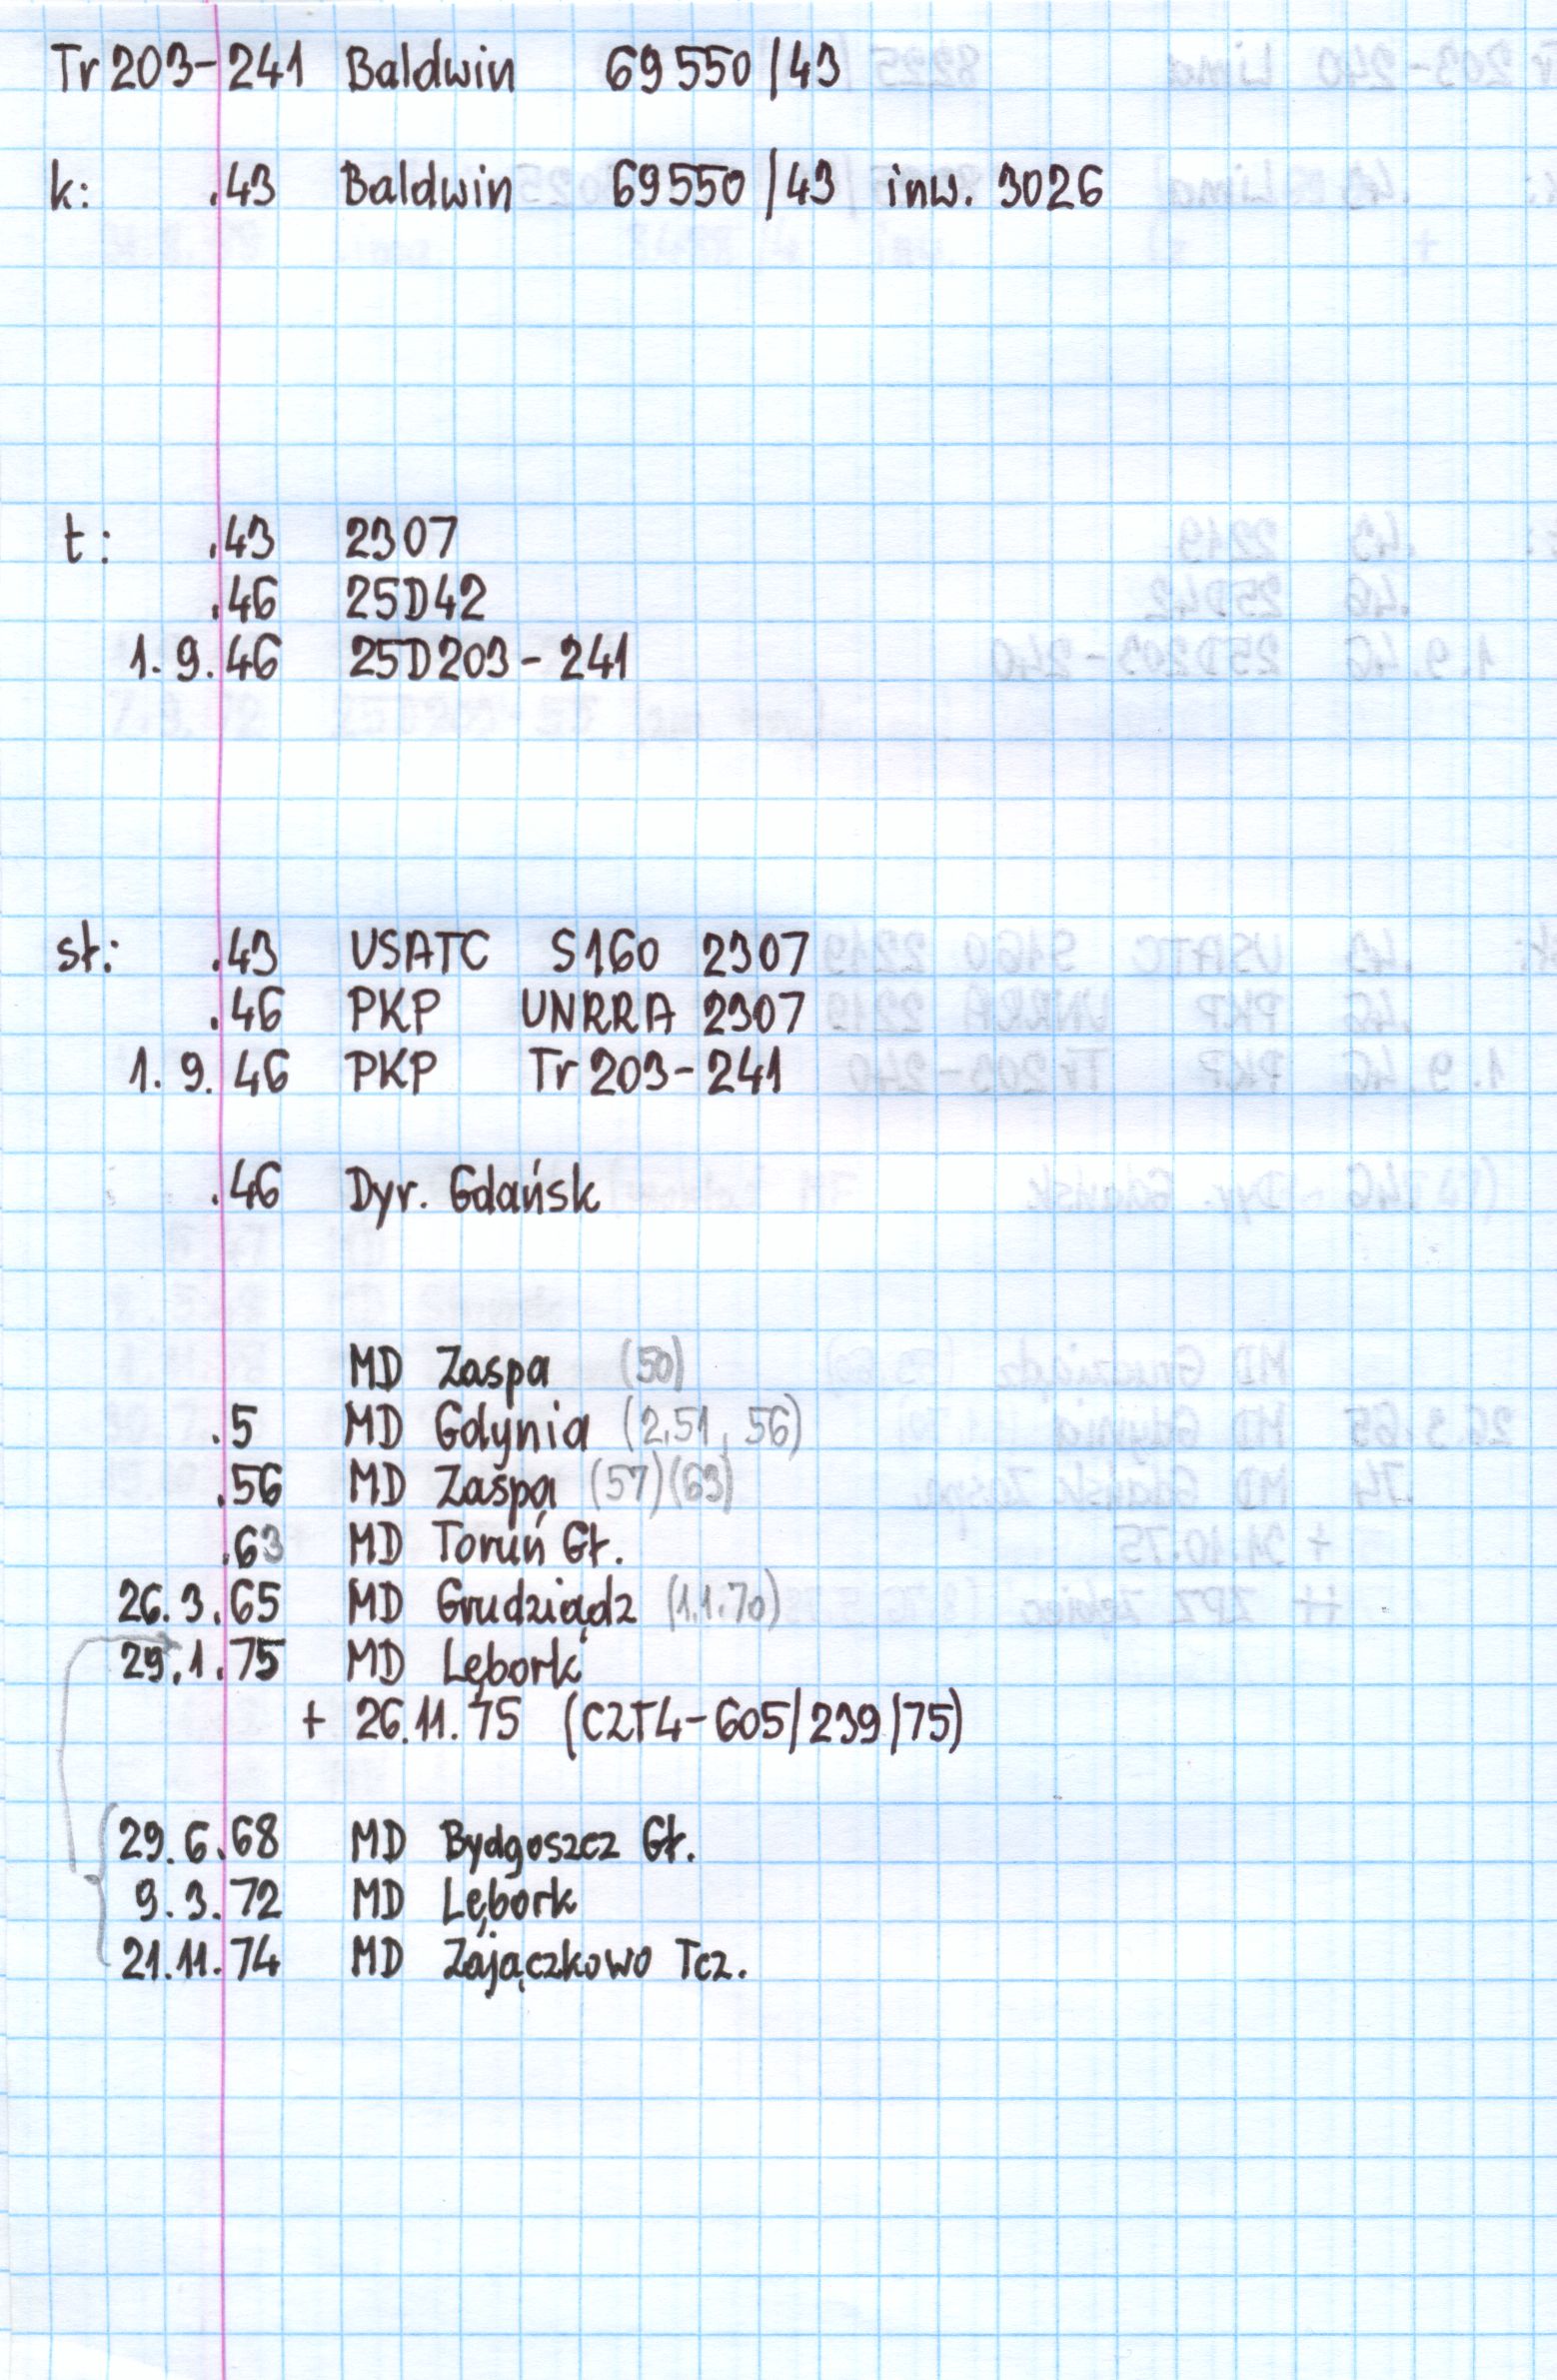 Tr203-241 Baldwin 69550/43
k: .43 Baldwin 69550/43 inw. 3026
t: .43 2307
.46 25D42
1.9.46 25D203-241
sł: .43 USATC S160 2307
.46 PKP UNRRA 2307
1.9.46 PKP Tr203-241
.46 Dyr. Gdańsk
MD Zaspa (50)
.5 MD Gdynia (2.51, 56)
.56 MD Zaspa (57)(63)
.63 MD Toruń Gł.
26.3.65 MD Grudziądz (1.1.70)
29.1.75 MD Lębork
+ 26.11.75 (CZT4-605/239/75)
29.6.68 MD Bydgoszcz Gł.
9.3.72 MD Lębork
21.11.74 MD Zajączkowo Tcz.